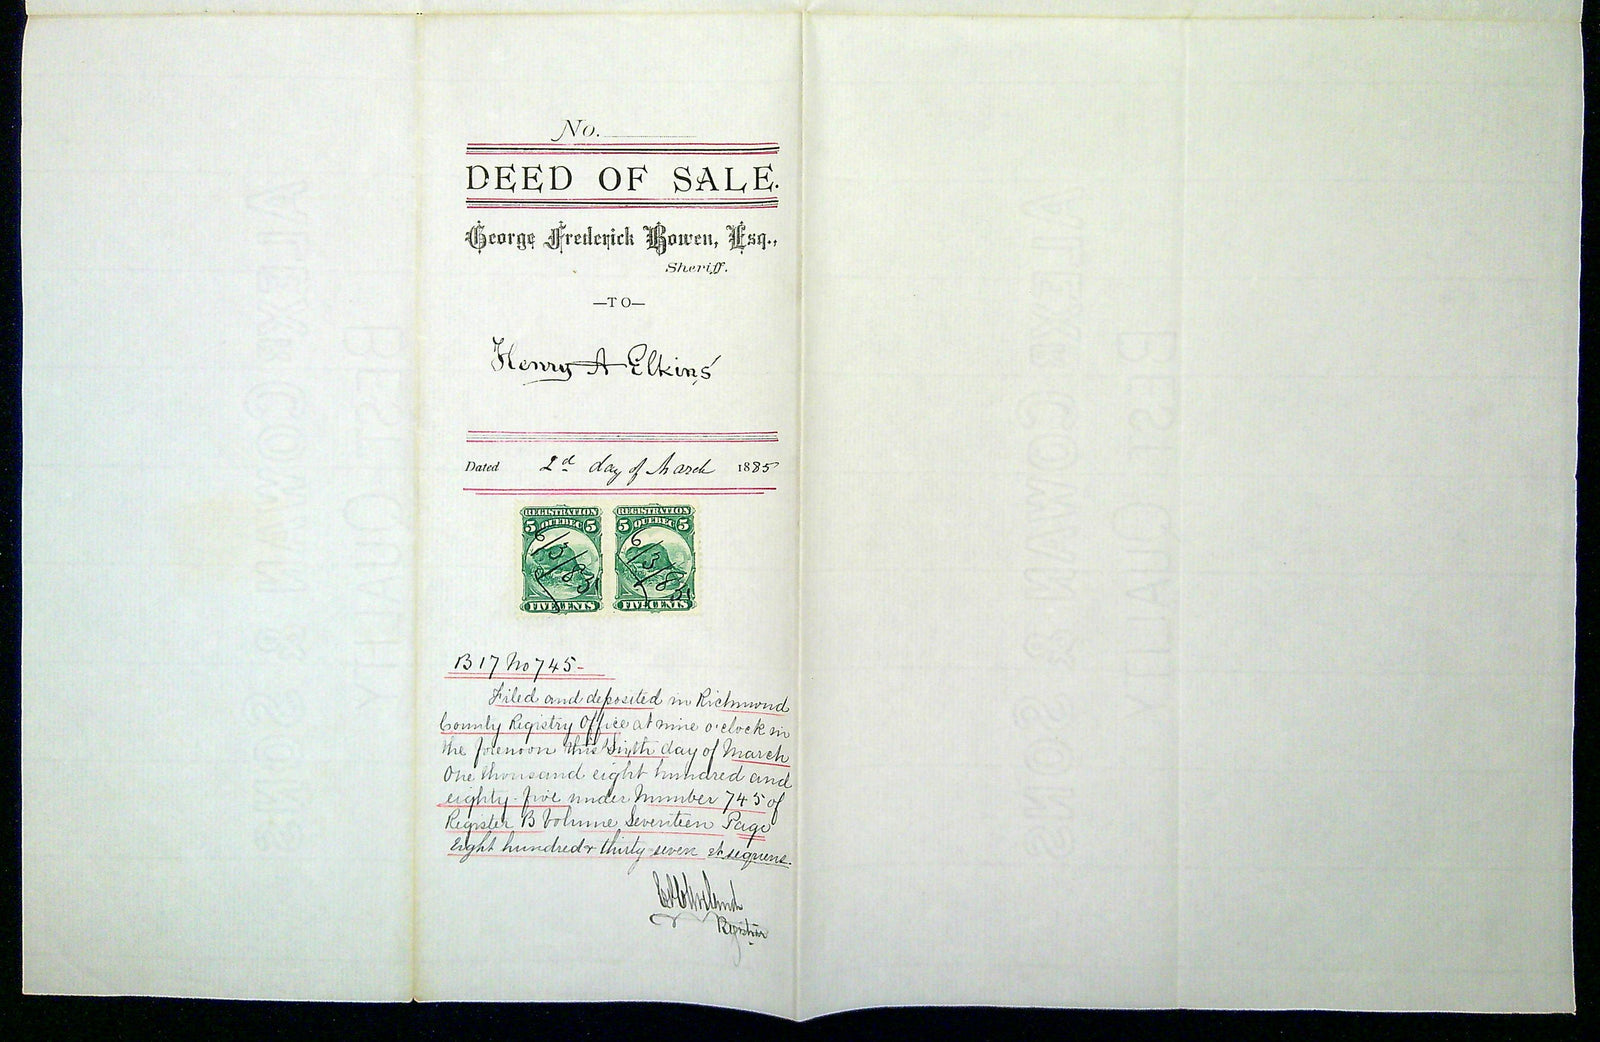 No.
DEED OF SALE.
George Frederick Bowen, Esq.,
Sheriff.
—TO—
Henry A Elkins
Dated 2d day of March 1885
REGISTRATION
5 QUEBEC 5
6/3/85
FIVE CENTS
REGISTRATION
5 QUEBEC 5
6/3/85
FIVE CENTS
B 17 No 745-
Filed and deposited in Richmond
County Registry Office at nine o'clock in
the forenoon this Sixth day of March
One thousand eight hundred and
eighty-five under Number 745 of
Register B Volume Seventeen Page
Eight hundred & thirty-seven et sequens.
Registrar
ALEXR COWAN & SONS
BEST QUALITY
ALEXR COWAN & SONS
BEST QUALITY